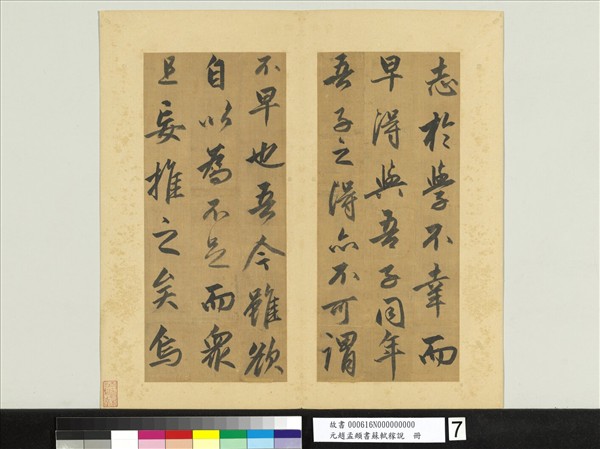 志於學不幸而
早得與吾子同年
吾子之得亦不可謂
不早也吾今雖欲
自以為不足而眾
且妄推之矣烏
故書 000616N000000000
元趙孟頫書蘇軾稼說 冊
7